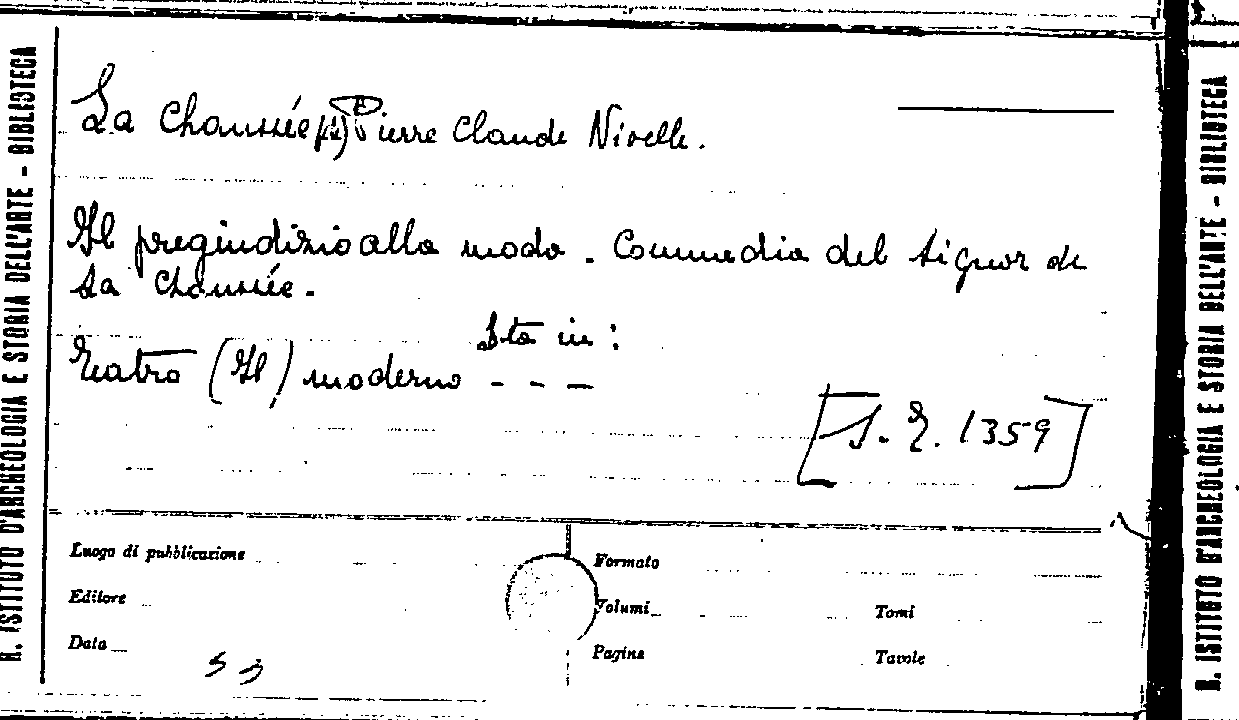 R. ISTITUTO D'ARCHEOLOGIA E STORIA DELL'ARTE - BIBLIOTECA
La Chaussée Pierre Claude Nivelle.
Il pregiudizio alla moda. Commedia del Signor de
La Chaussée.
Sta in:
Teatro (Il) moderno - - -
[S. E. 1359]
Luogo di pubblicazione
Formato
Editore
Volumi
Tomi
Data
Pagine
Tavole
R. ISTITUTO D'ARCHEOLOGIA E STORIA DELL'ARTE - BIBLIOTECA